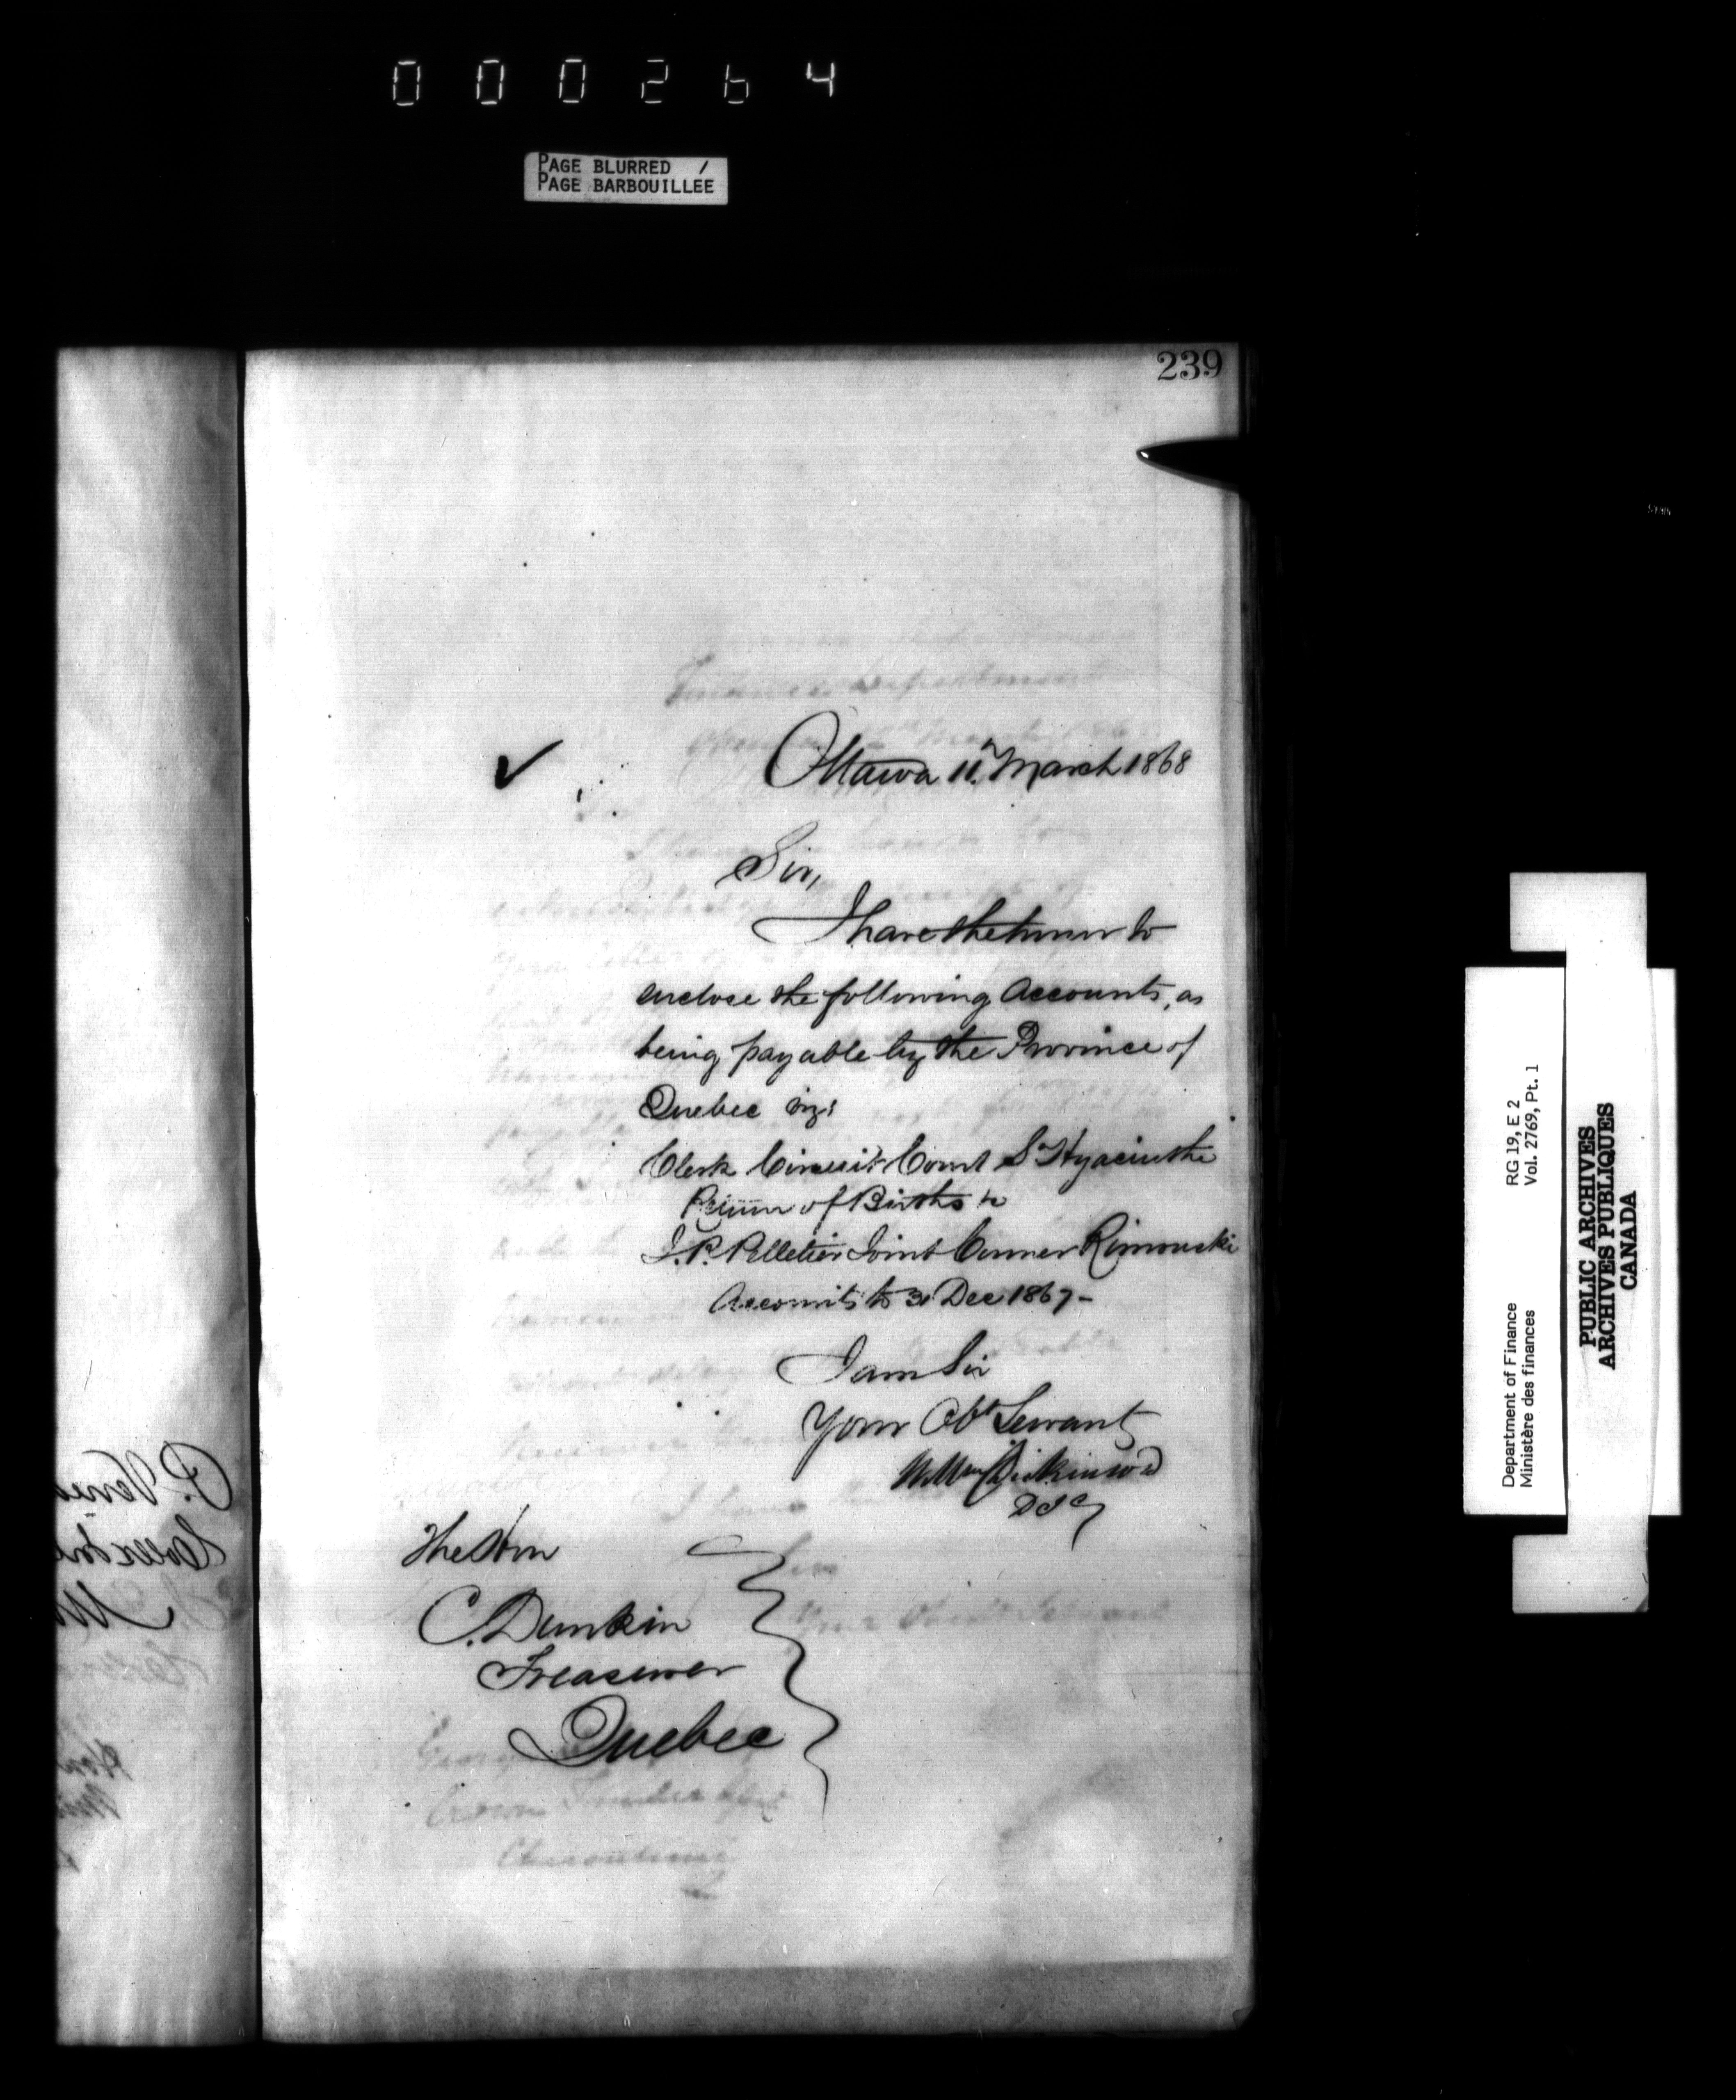 000264
PAGE BLURRED /
PAGE BARBOUILLEE
239
Ottawa 11th March 1868
Sir,
I have the honor to
enclose the following Accounts, as
being payable by the Province of
Quebec viz:
Clerk Circuit Court St Hyacinthe
Return of Births &c
J. P. Pelletier Joint Coroner Rimouski
Accounts to 31 Dec 1867 –
I am Sir
Your Obt Servant
Wm Dickinson
D I G
The Hon
C. Dunkin
Treasurer
Quebec
Department of Finance RG 19, E 2
Ministère des finances Vol. 2769, Pt. 1
PUBLIC ARCHIVES
ARCHIVES PUBLIQUES
CANADA